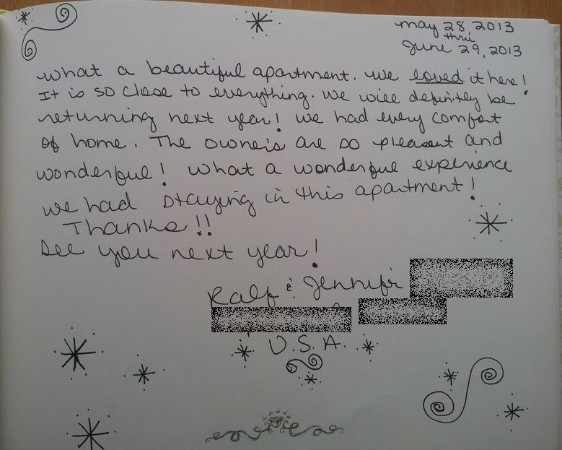 may 28, 2013
thru
June 29, 2013
what a beautiful apartment. we loved it here!
It is so close to everything. we will definitly be
returning next year! we had every comfort
of home. The owners are so pleasant and
wonderful! what a wonderful experience
we had staying in this apartment!
Thanks!!
See you next year!
Ralf & Jennifr
U.S.A.